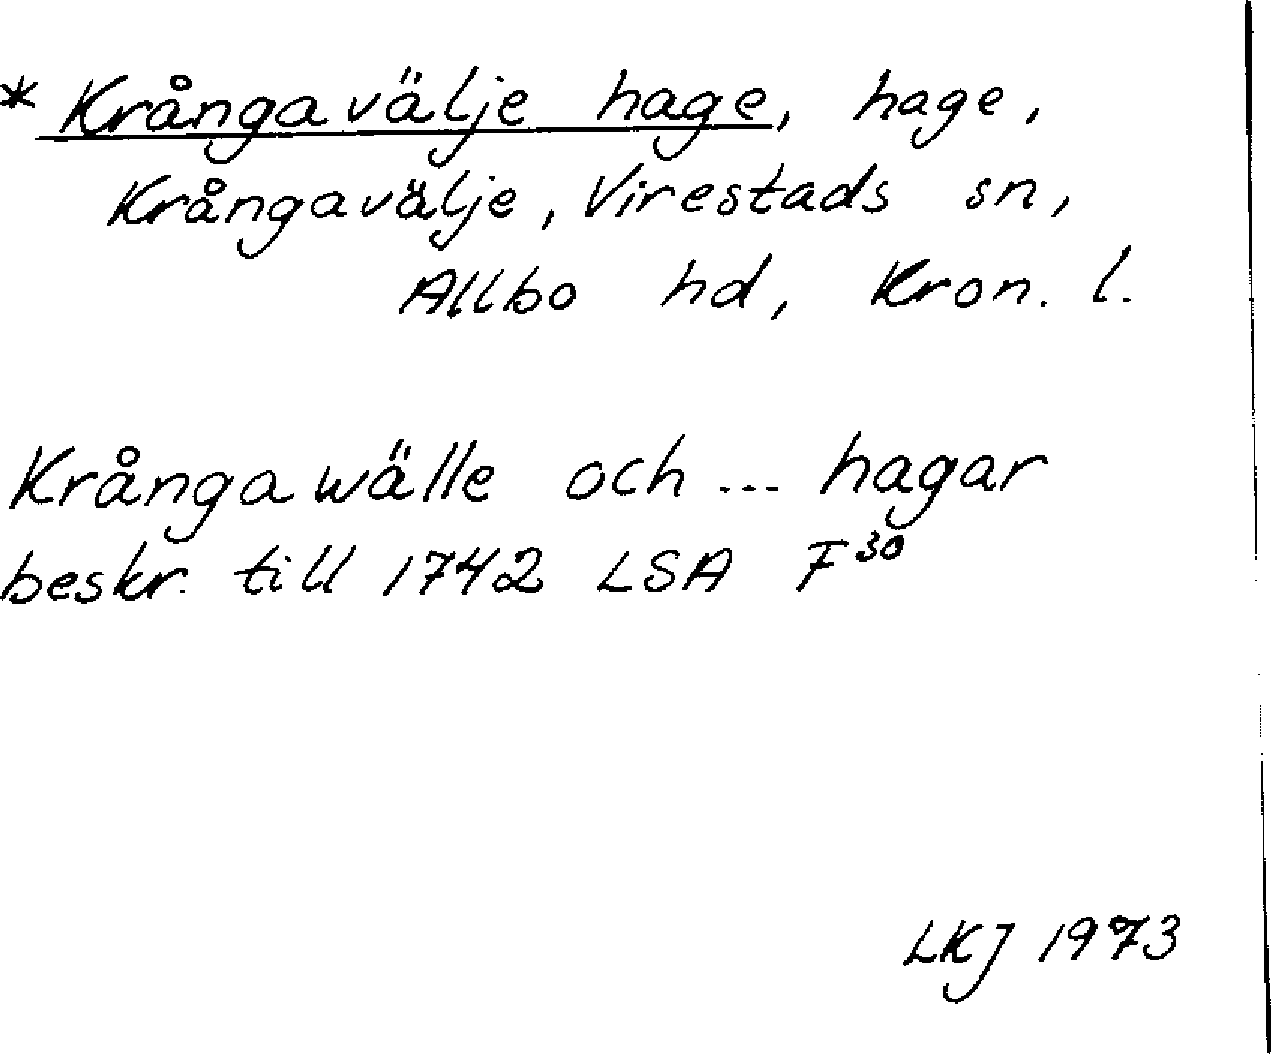 * Krångavälje hage, hage,
Krångavälje, Virestads sn,
Allbo hd, Kron. l.
Krångawälle och ... hagar
beskr. till 1742 LSA F³⁰
LKJ 1973